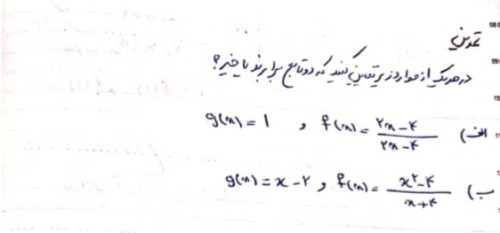 تمرین
در هر یک از موارد زیر تعیین کنید که دو تابع برابرند یا خیر؟
الف) f(x) = (۲x-۴)/(۲x-۴) و g(x) = 1
ب) f(x) = (x²-۴)/(x+۲) و g(x) = x-۲